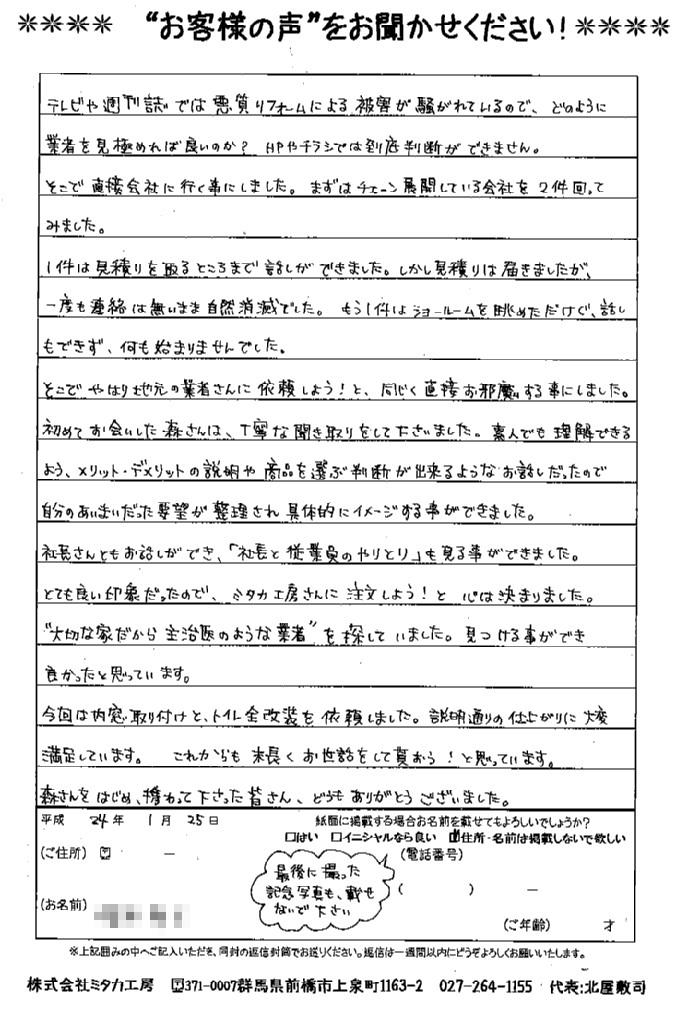 **** “お客様の声”をお聞かせください！****
テレビや週刊誌では悪質リフォームによる被害が騒がれているので、どのように
業者を見極めれば良いのか？ HPやチラシでは到底判断ができません。
そこで直接会社に行く事にしました。まずはチェーン展開している会社を2件回って
みました。
1件は見積りを取るところまで話しができました。しかし見積りは届きましたが、
一度も連絡は無いまま自然消滅でした。もう1件はショールームを眺めただけで、話し
もできず、何も始まりませんでした。
そこでやはり地元の業者さんに依頼しよう！と、同じく直接お邪魔する事にしました。
初めてお会いした森さんは、丁寧な聞き取りをして下さいました。素人でも理解できる
よう、メリット・デメリットの説明や商品を選ぶ判断が出来るようなお話しだったので
自分のあいまいだった要望が整理され具体的にイメージする事ができました。
社長さんともお話しができ、「社長と従業員のやりとり」も見る事ができました。
とても良い印象だったので、ミタカ工房さんに注文しよう！と心は決まりました。
“大切な家だから主治医のような業者”を探していました。見つける事ができ
良かったと思っています。
今回は内窓取り付けと、トイレ全改装を依頼しました。説明通りの仕上がりに大変
満足しています。 これからも末長くお世話をして貰おう！と思っています。
森さんをはじめ、携わって下さった皆さん、どうもありがとうございました。
平成 24年 1月 25日 紙面に掲載する場合お名前を載せてもよろしいでしょうか？
□はい □イニシャルなら良い ☑住所・名前は掲載しないで欲しい
(ご住所) 〒 － (電話番号)
最後に撮った
記念写真も、載せ
ないで下さい
( ) －
(お名前)
(ご年齢) 才
※上記囲みの中へご記入いただき、同封の返信封筒でお送りください。返信は一週間以内にどうぞよろしくお願いいたします。
株式会社ミタカ工房 〒371-0007群馬県前橋市上泉町1163-2 027-264-1155 代表:北屋敷司